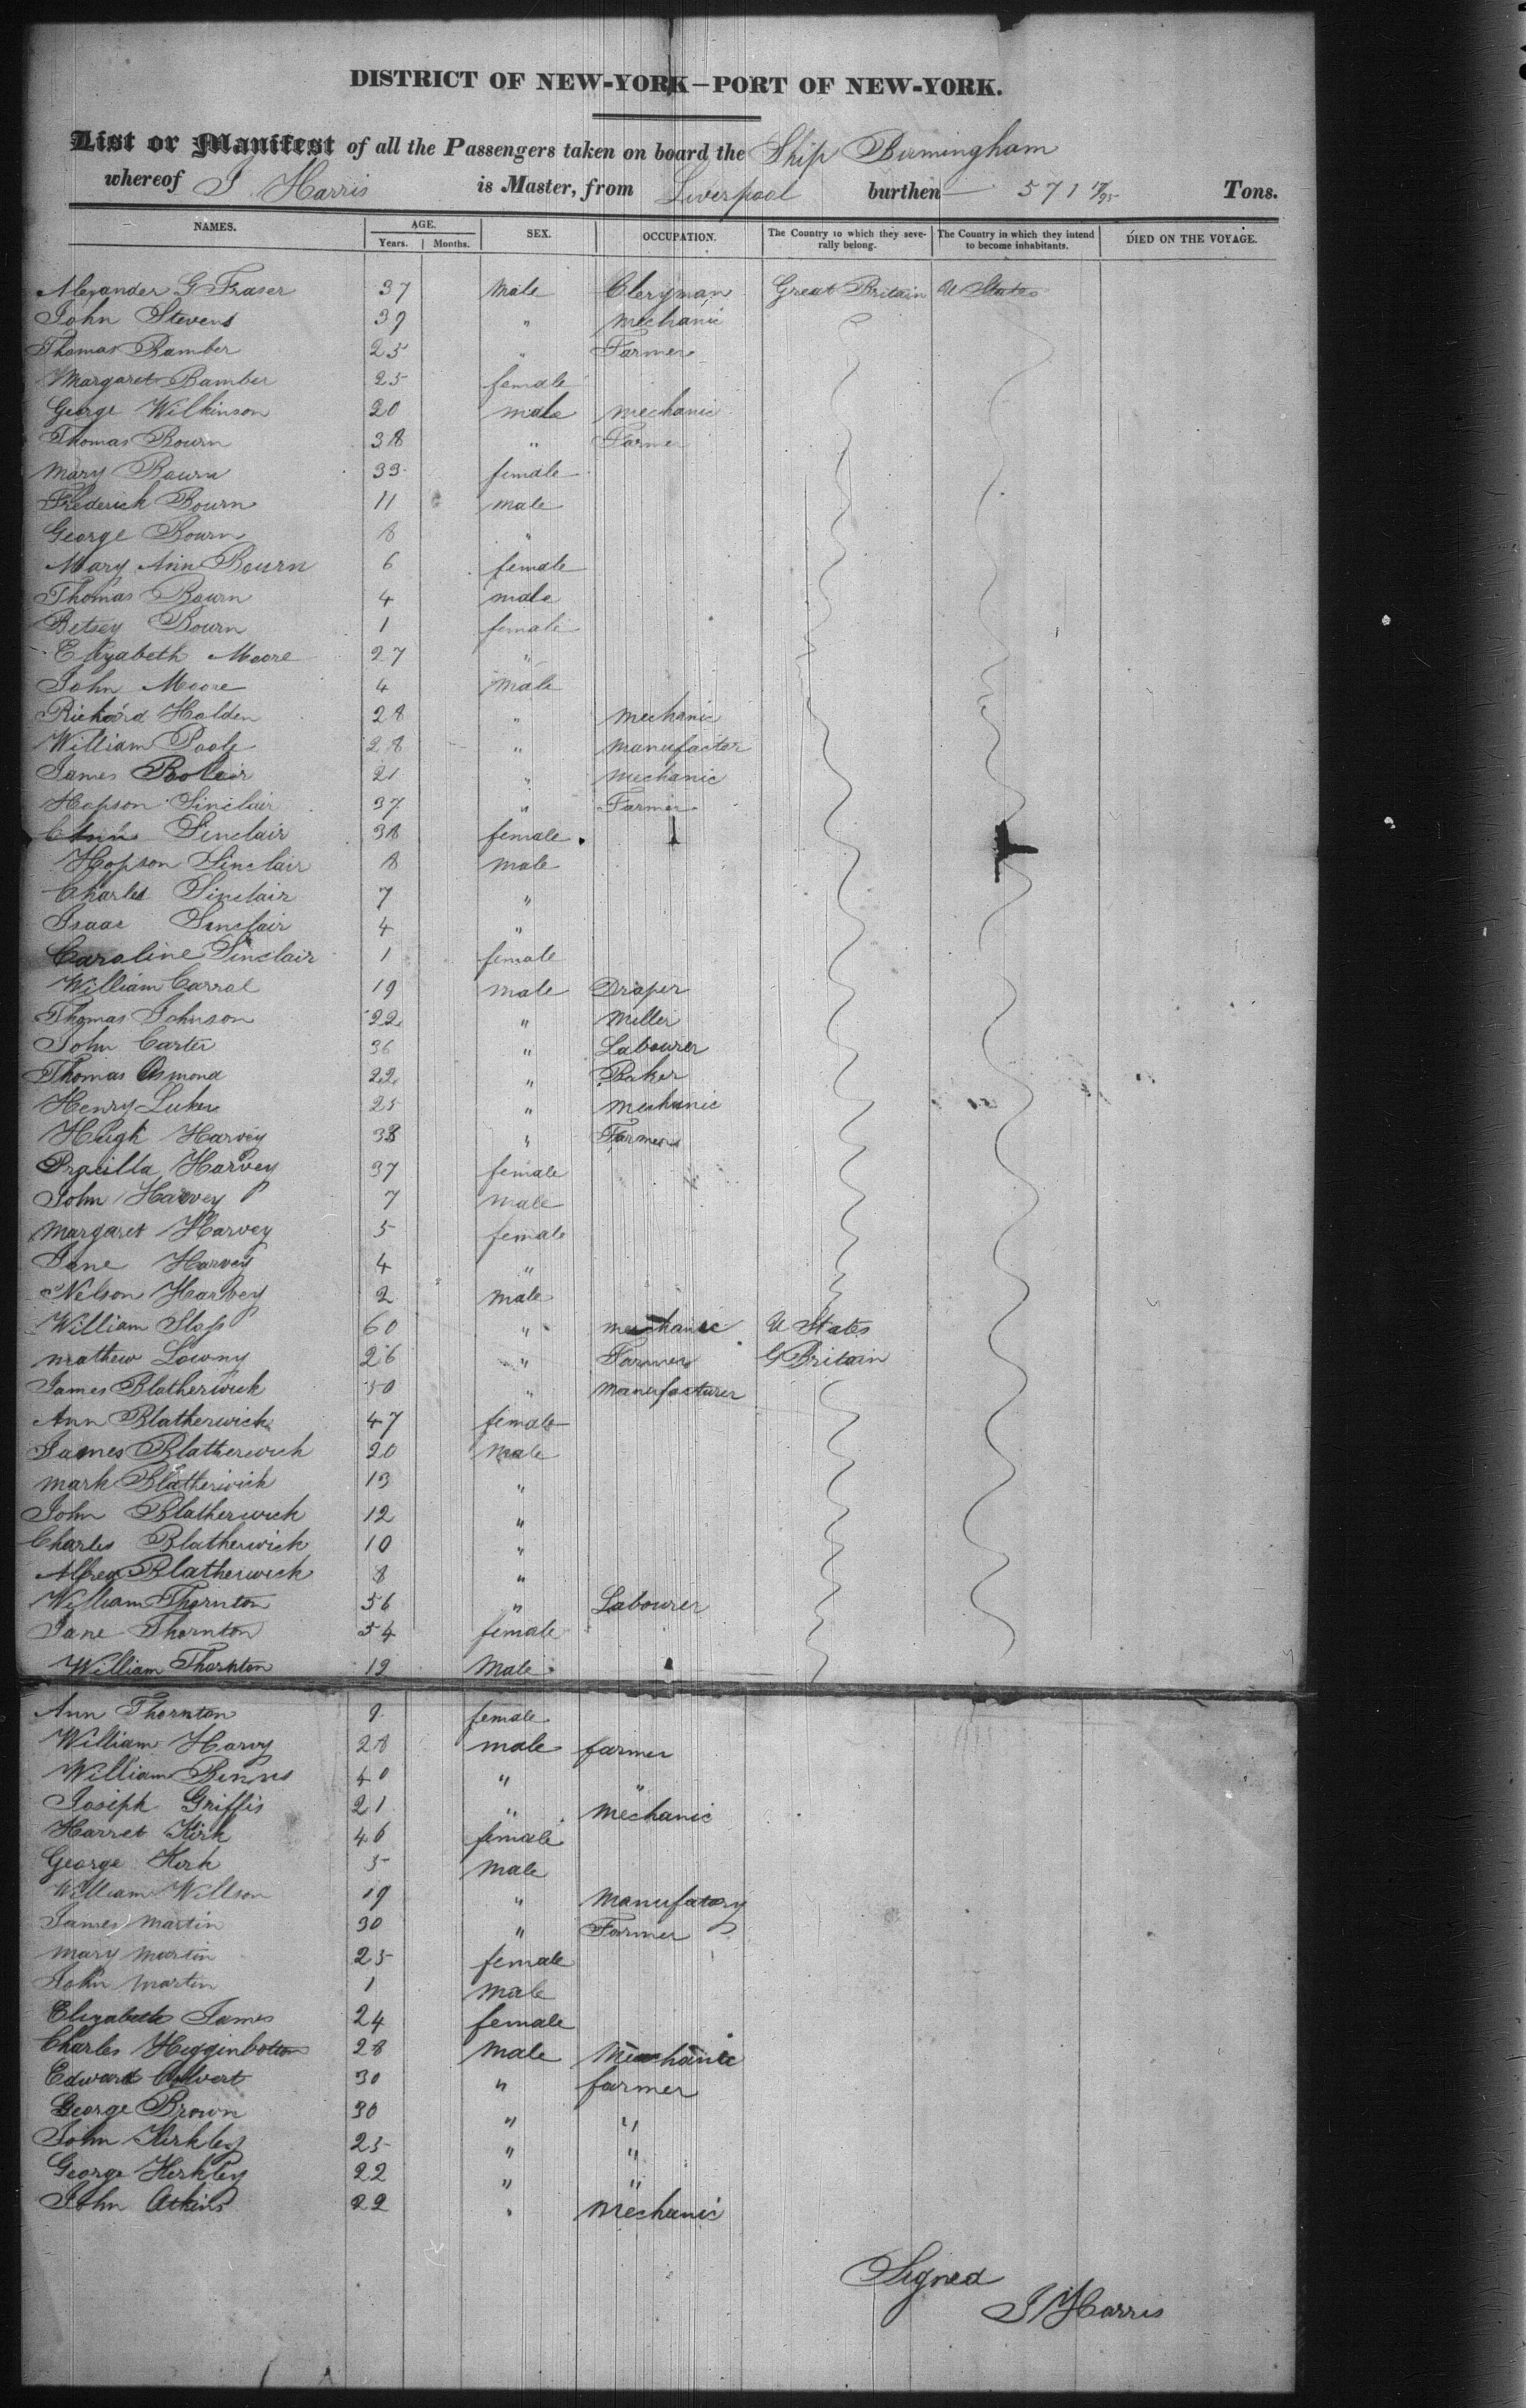 DISTRICT OF NEW-YORK—PORT OF NEW-YORK.
List or Manifest of all the Passengers taken on board the Ship Birmingham
whereof J Harris is Master, from Liverpool burthen 571 Tons.
NAMES. AGE. Years. Months. SEX. OCCUPATION. The Country to which they severally belong. The Country in which they intend to become inhabitants. DIED ON THE VOYAGE.
Alexander G Fraser 37 Male Clergman Great Britain U States
John Stevens 39 " mechanic
Thomas Bamber 25 " Farmer
Margaret Bamber 25 female
George Wilkinson 20 male mechanic
Thomas Bourn 38 " Farmer
Mary Bourn 33 female
Frederick Bourn 11 male
George Bourn 8 "
Mary Ann Bourn 6 female
Thomas Bourn 4 male
Betsey Bourn 1 female
Elizabeth Moore 27 "
John Moore 4 male
Richard Holden 28 " mechanic
William Poole 28 " manufactor
James 21 " mechanic
Hopson Sinclair 37 " Farmer
Ann Sinclair 38 female
Hopson Sinclair 8 male
Charles Sinclair 7 "
Isaac Sinclair 4 "
Caroline Sinclair 1 female
William Carral 19 male Draper
Thomas Johnson 22 " Miller
John Carter 36 " Labourer
Thomas Osmond 22 " Baker
Henry Luker 25 " mechanic
Hugh Harvey 38 " Farmer
Pracilla Harvey 37 female
John Harvey 7 male
Margaret Harvey 5 female
Jane Harvey 4 "
Nelson Harvey 2 male
William 60 " mechanic U States
mathew Lowny 26 " Farmer G Britain
James Blatherwick 50 " manufacturer
Ann Blatherwick 47 female
James Blatherwick 20 Male
mark Blatherwick 13 "
John Blatherwick 12 "
Charles Blatherwick 10 "
Alfred Blatherwick 8 "
William Thornton 56 " Labourer
Jane Thornton 54 female
William Thornton 12 Male
Ann Thornton 9 female
William Harvy 28 male farmer
William Binns 40 " "
Joseph Griffis 21 " mechanic
Harret Kirk 46 female
George Kirk 5 male
William Willson 19 " manufatory
James Martin 30 " Farmer
mary martin 25 female
John martin 1 male
Elizabeth James 24 female
Charles Higginbottom 28 Male Mechanic
Edward Calvert 30 " farmer
George Brown 30 " "
John Kirkley 25 " "
George Kirkley 22 " "
John Atkins 22 " mechanic
Signed
J Harris